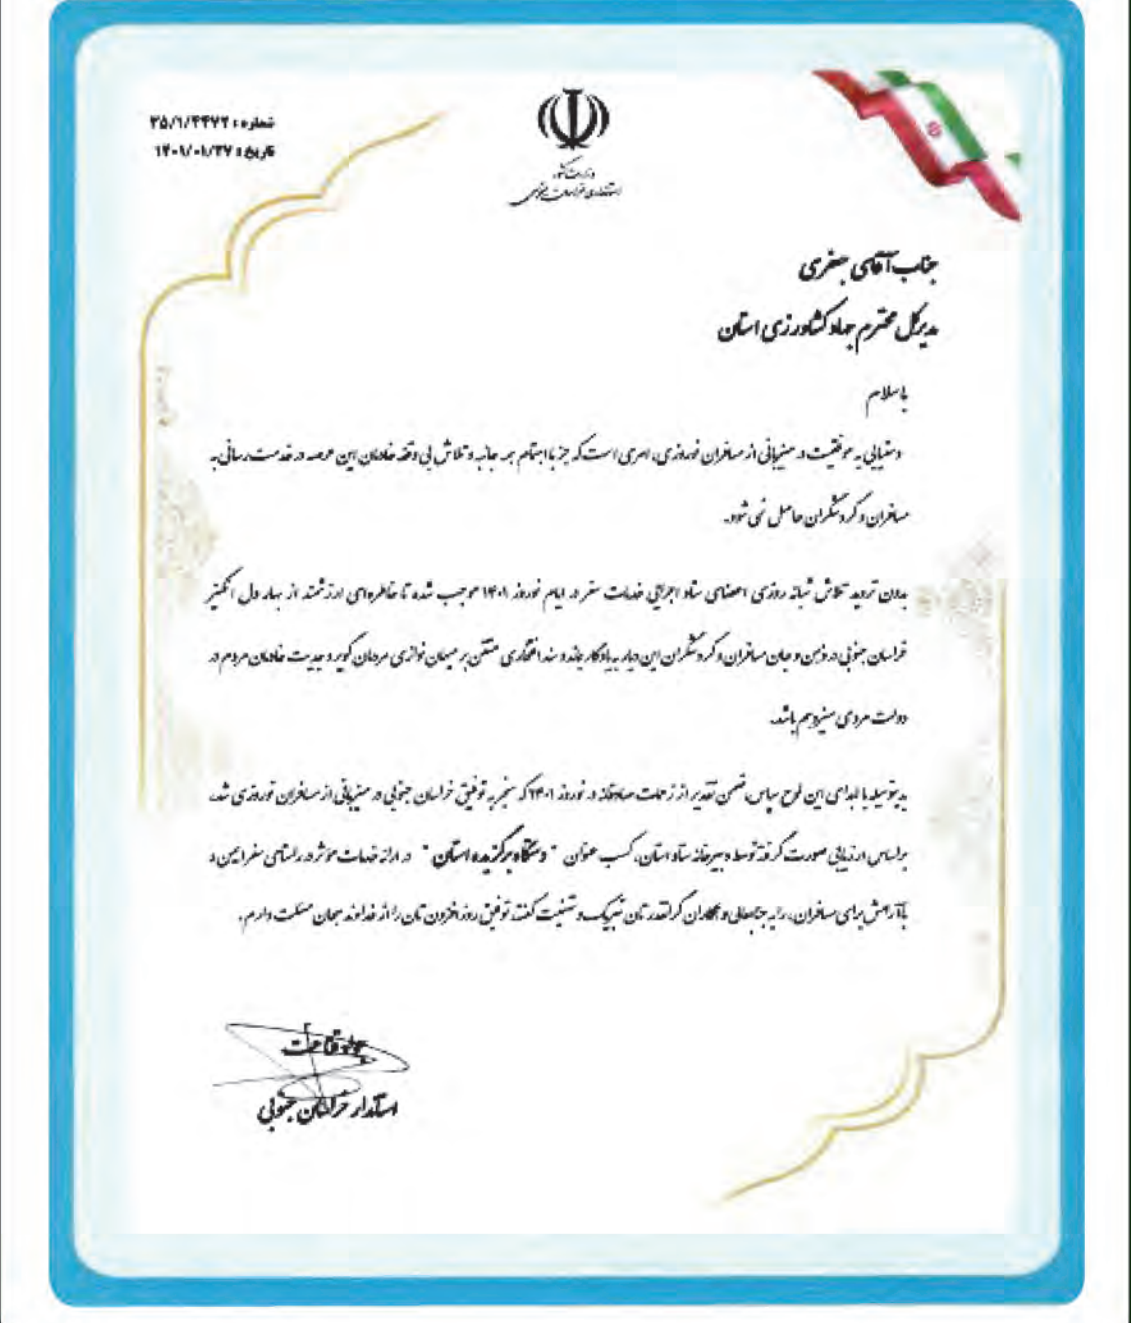 شماره: ۳۵/۱/۴۴۷۲
تاریخ: ۱۴۰۱/۰۱/۲۷
وزارت کشور
استانداری خراسان جنوبی
جناب آقای جعفری
مدیرکل محترم جهاد کشاورزی استان
باسلام
دستیابی به موفقیت در میزبانی از مسافران نوروزی، امری است که جز با اهتمام همه جانبه و تلاش بی وقفه خادمان این عرصه در خدمت رسانی به
مسافران و گردشگران حاصل نمی شود.
بدون تردید تلاش شبانه روزی اعضای ستاد اجرایی خدمات سفر در ایام نوروز ۱۴۰۱ موجب شده تا خاطره‌ای ارزشمند از بهار دل انگیز
خراسان جنوبی در ذهن و جان مسافران و گردشگران این دیار به یادگار بماند و سند افتخاری متقن بر میهمان نوازی مردمان کویر و جدیت خادمان مردم در
دولت مردمی سیزدهم باشد.
بدینوسیله با اهدای این لوح سپاس، ضمن تقدیر از زحمات صادقانه در نوروز ۱۴۰۱ که منجر به توفیق خراسان جنوبی در میزبانی از مسافران نوروزی شد،
براساس ارزیابی صورت گرفته توسط دبیرخانه ستاد استان، کسب عنوان " دستگاه برگزیده استان " در ارائه خدمات موثر در راستای سفر ایمن و
با آرامش برای مسافران، را به جنابعالی و همکاران گرانقدرتان تبریک و تهنیت گفته، توفیق روزافزون تان را از خداوند سبحان مسئلت دارم.
جواد قناعت
استاندار خراسان جنوبی